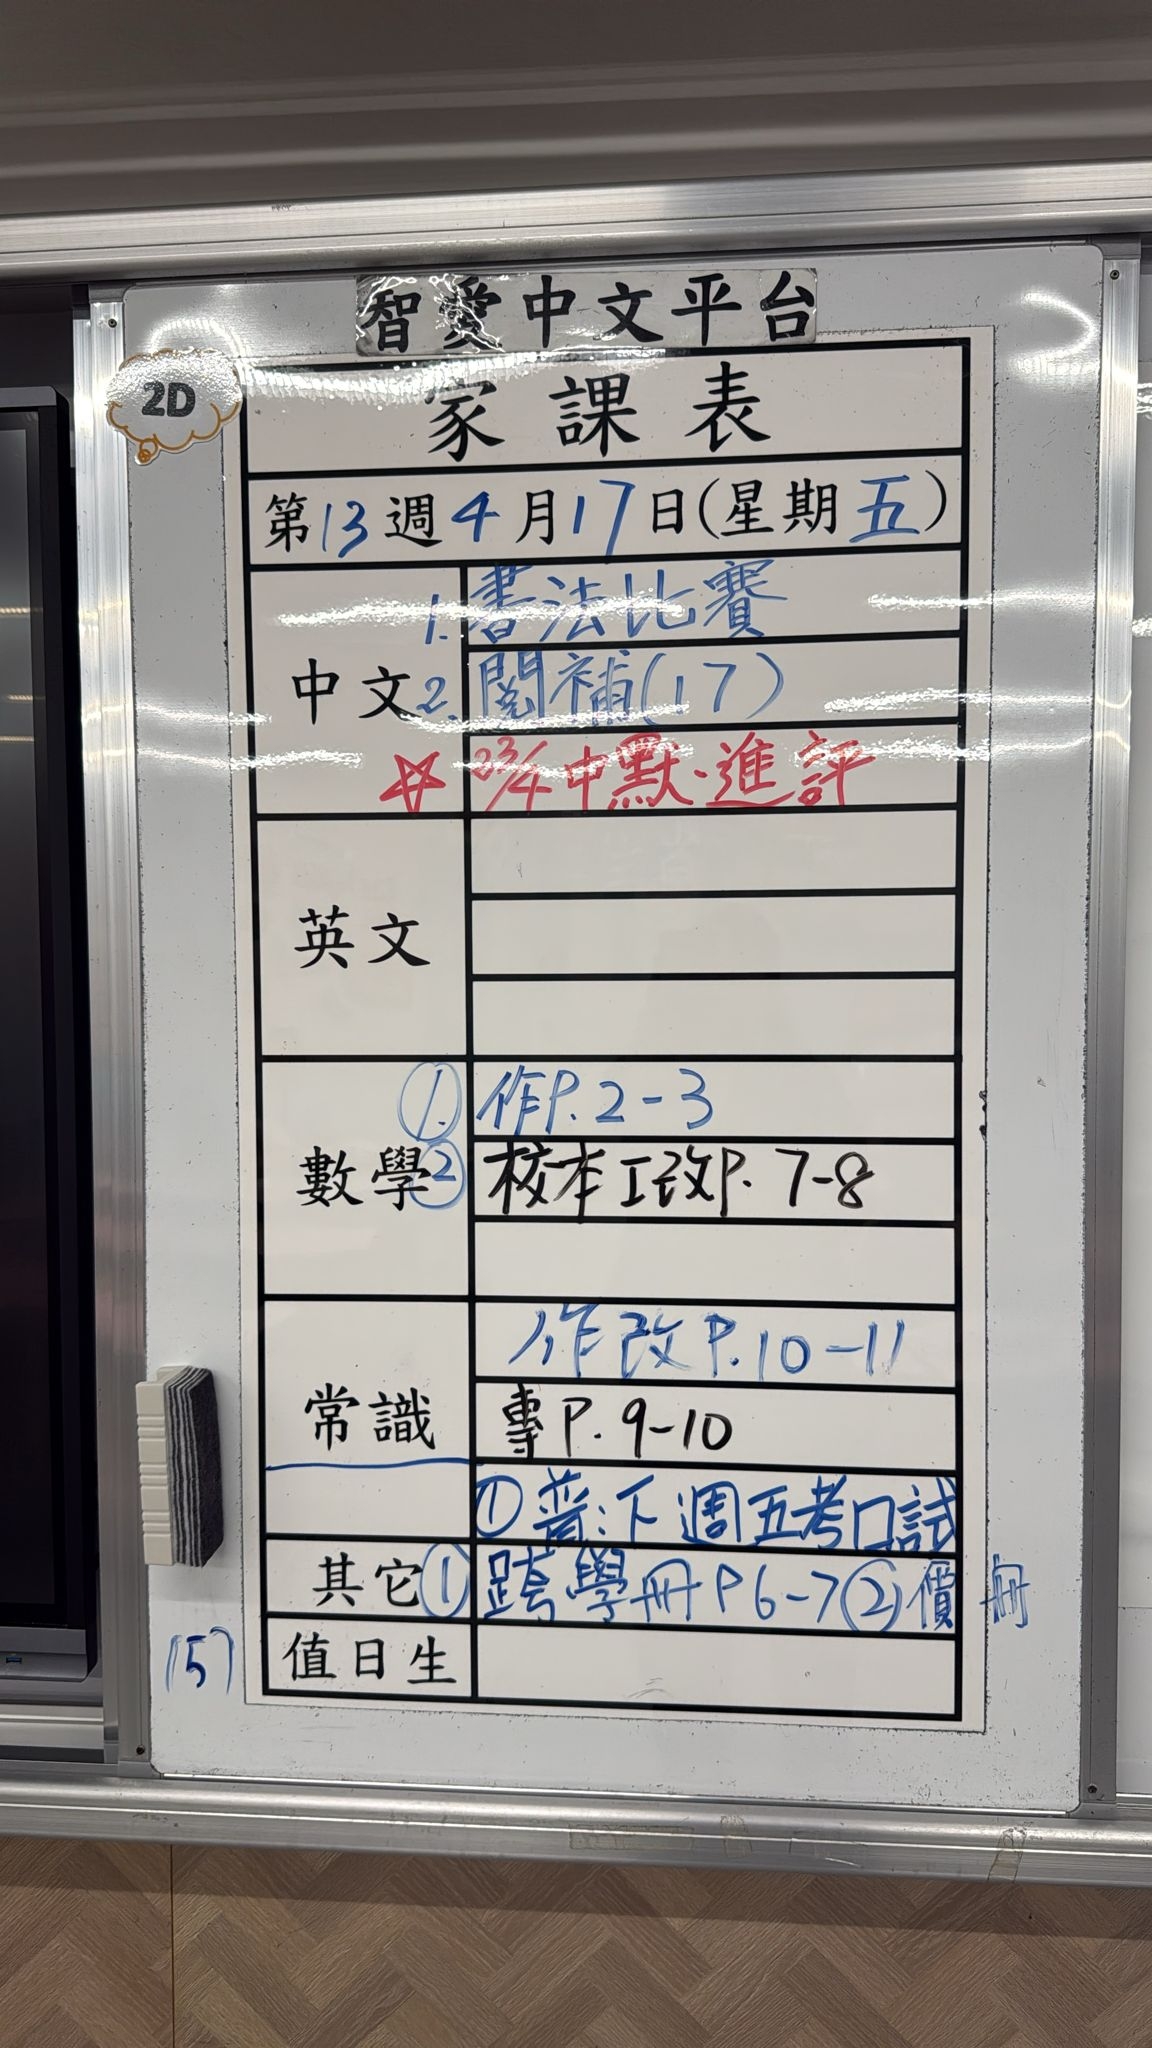 智愛中文平台
2D
家課表
第13週4月17日(星期五)
中文
1. 書法比賽
2. 閱補(17)
☆ 23/4 中默·進評
英文
數學
① 作P.2-3
② 校本工改P.7-8
常識
作改P.10-11
專P.9-10
①普:下週五考口試
其它
①跨學冊P6-7②價冊
(5)
值日生